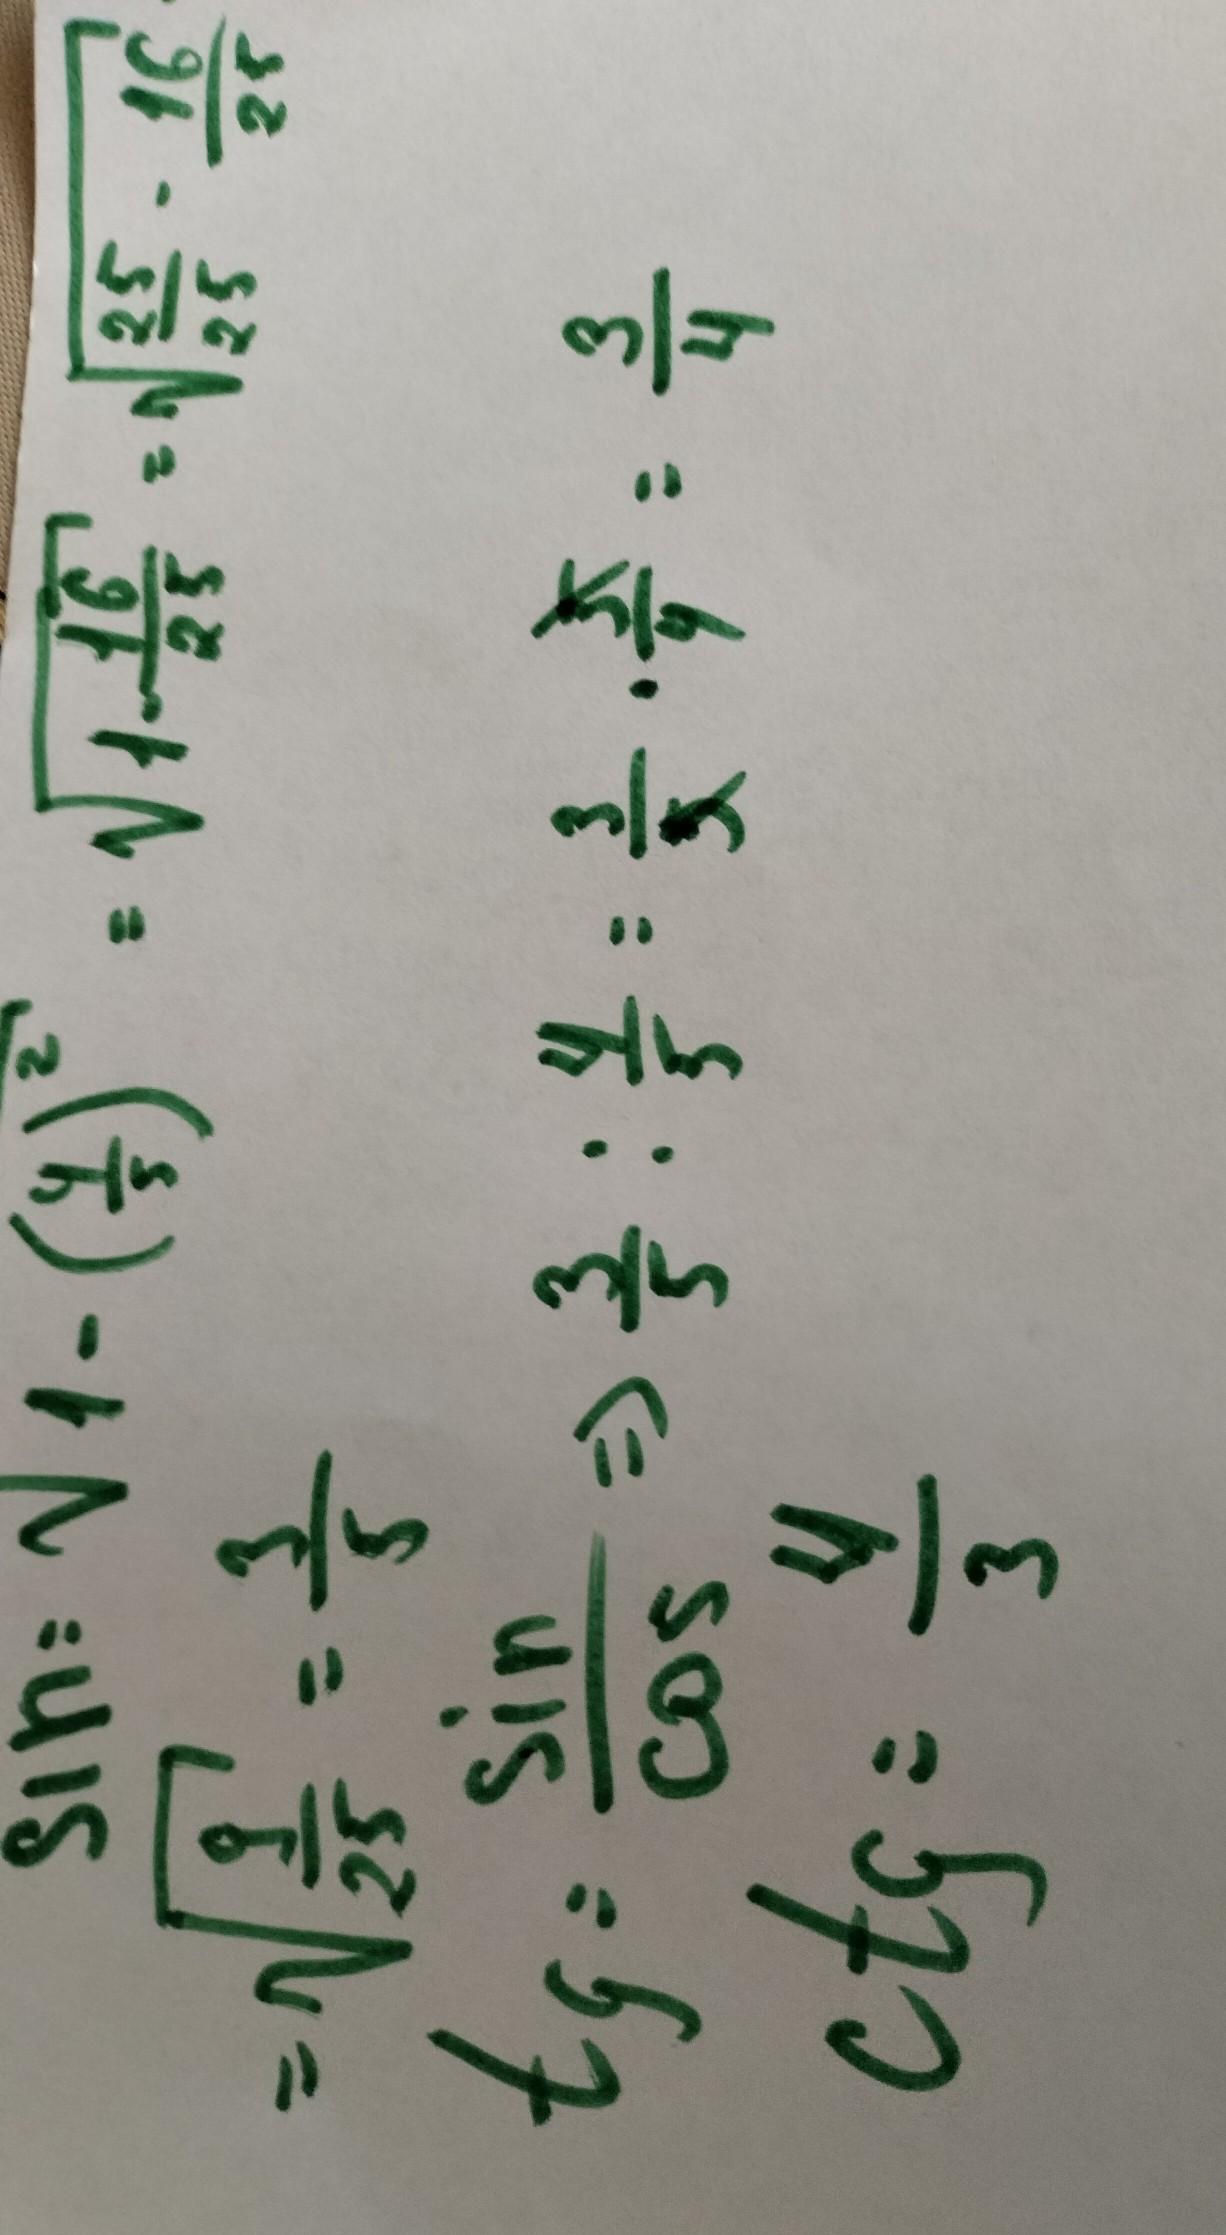 sin = √1 - (4/5)² = √1 - 16/25 = √25/25 - 16/25
= √9/25 = 3/5
tg = sin/cos => 3/5 : 4/5 = 3/5 · 5/4 = 3/4
ctg = 4/3